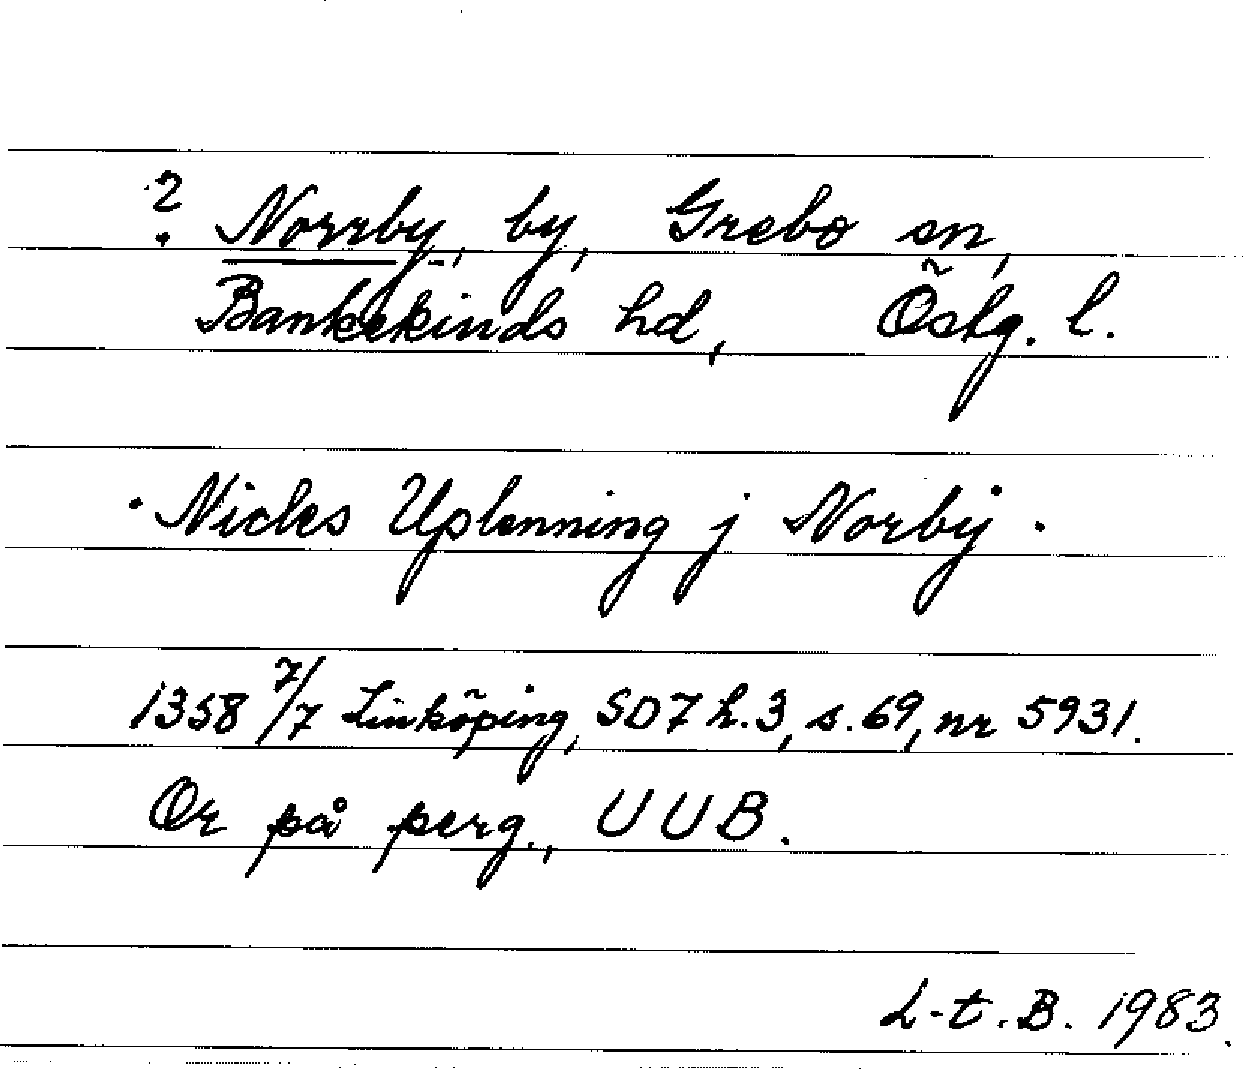 ? Norrby, by, Grebo sn,
Bankekinds hd, Östg. l.
· Nicles Uplenning j Norbÿ ·
1358 7/7 Linköping, SD7 h.3, s.69, nr 5931.
Or på perg., UUB.
L-t. B. 1983.